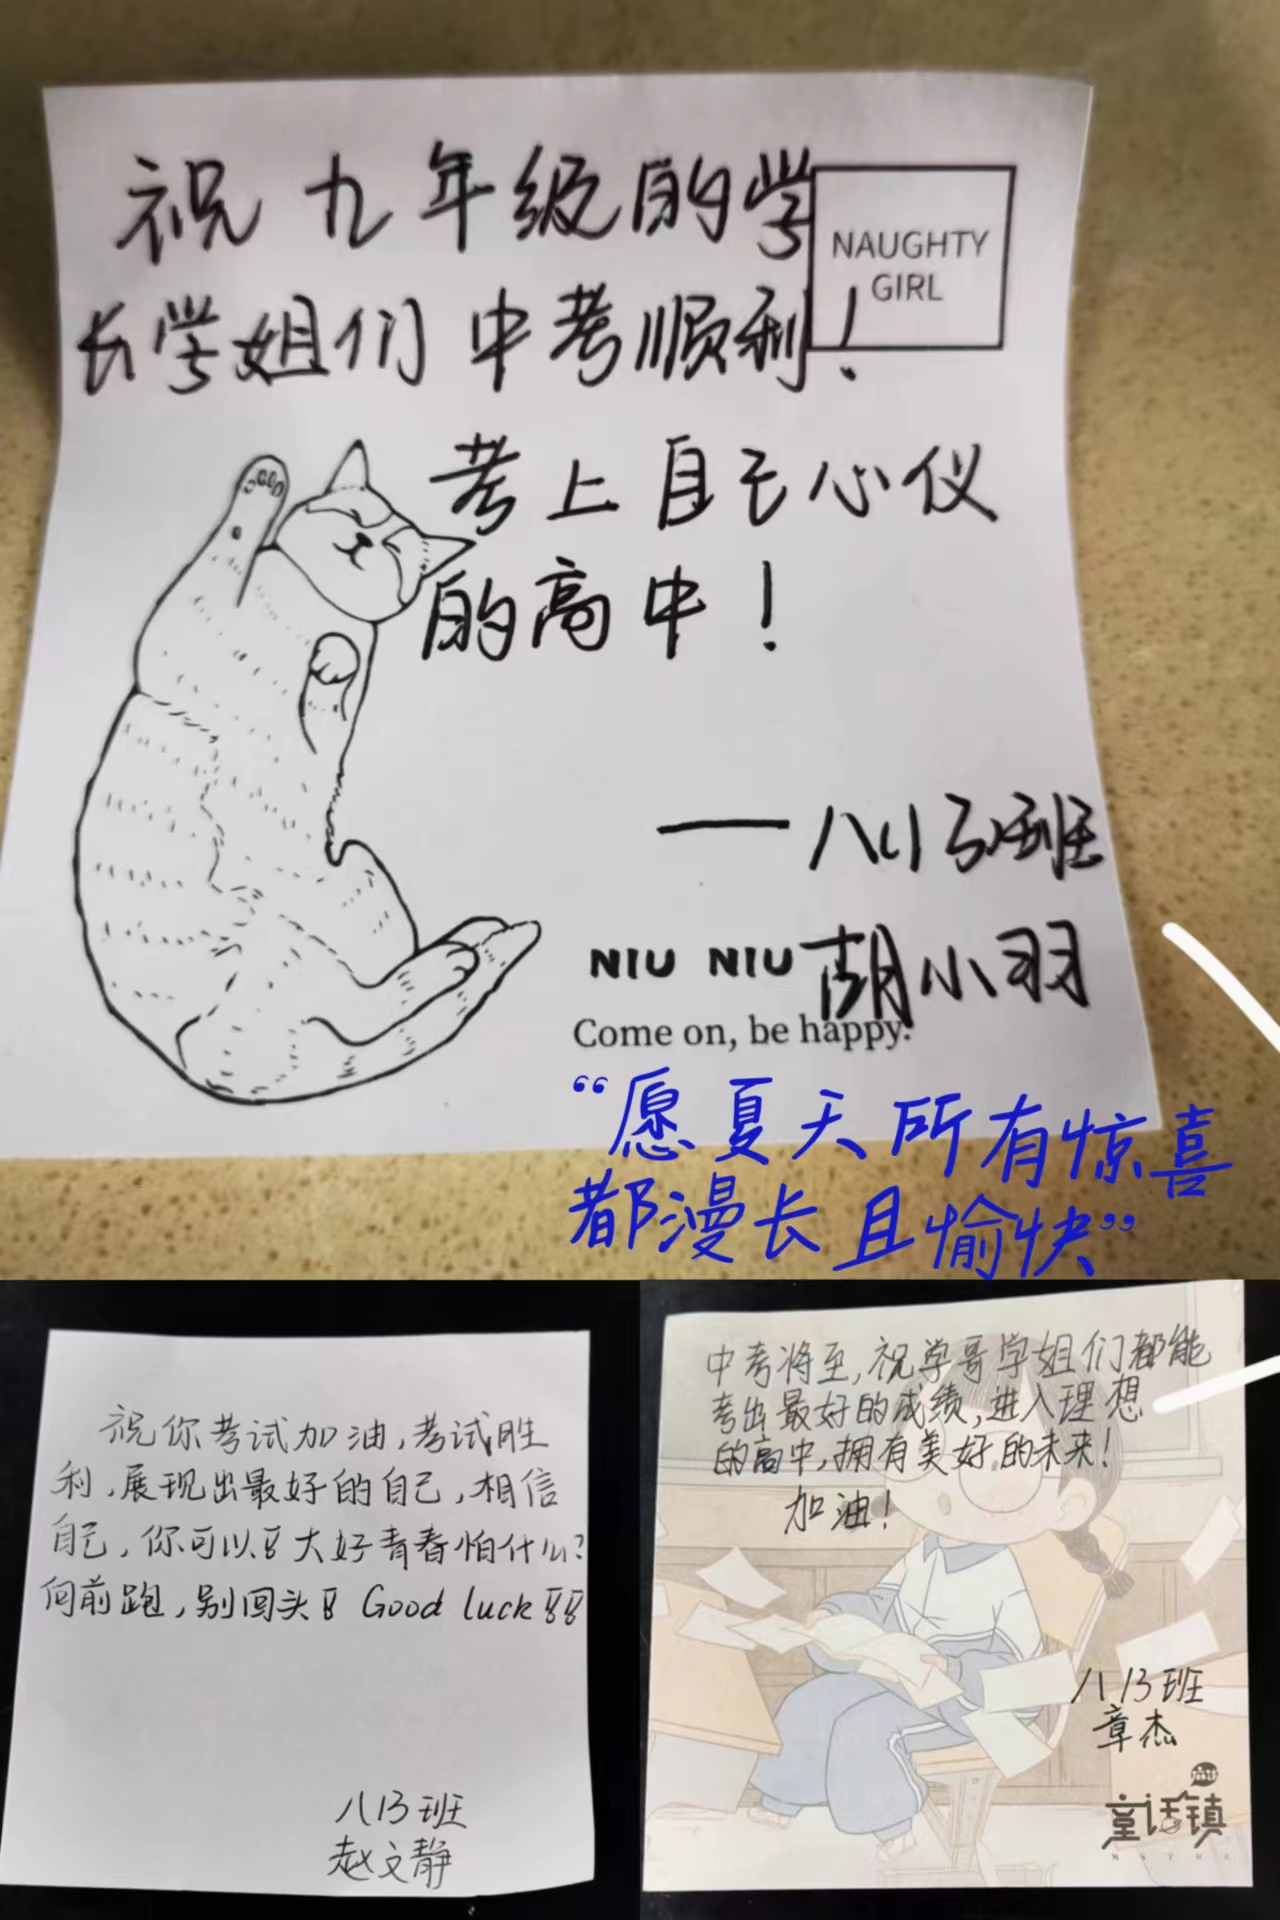 祝九年级的学
长学姐们中考顺利！
NAUGHTY
GIRL
考上自己心仪
的高中！
——八(13)班
NIU NIU 胡小羽
Come on, be happy.
“愿夏天所有惊喜
都漫长且愉快”
祝你考试加油，考试胜
利，展现出最好的自己，相信
自己，你可以！大好青春怕什么？
向前跑，别回头！Good luck!!
八13班
赵文静
中考将至，祝学哥学姐们都能
考出最好的成绩，进入理想
的高中，拥有美好的未来！
加油！
八13班
章杰
童话镇